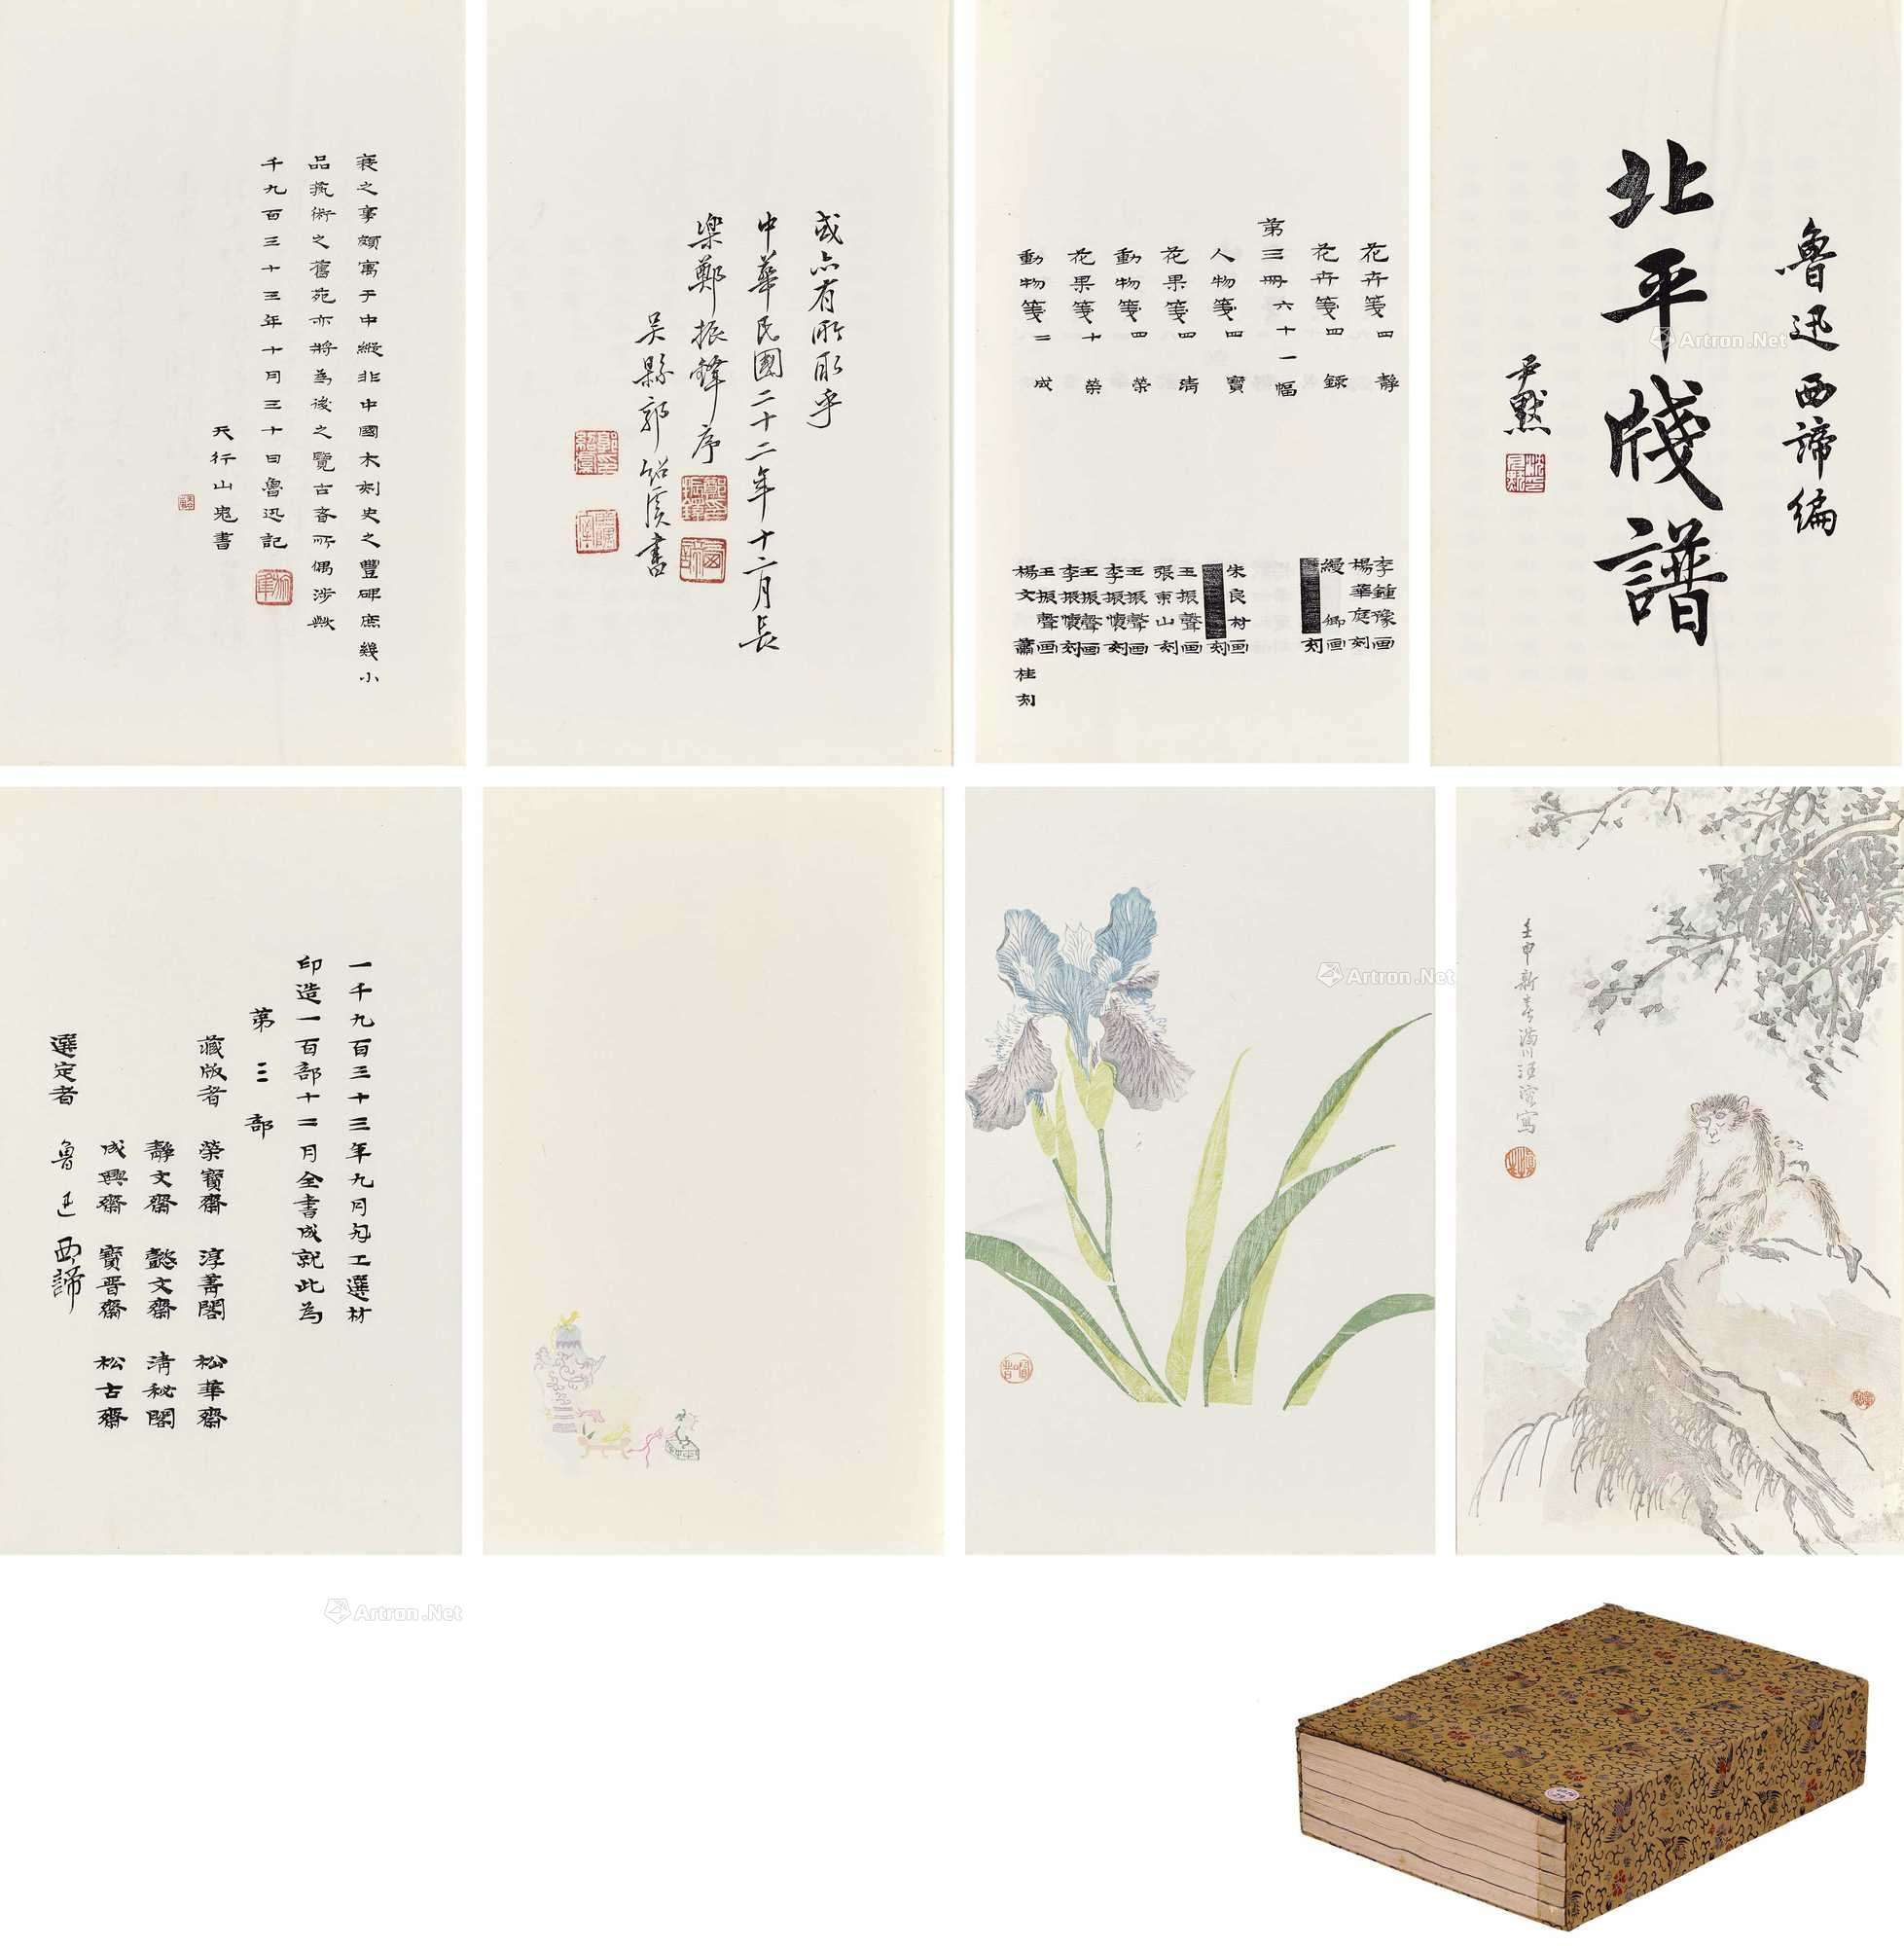 魯迅西諦編
北平牋譜
尹默
花卉箋四 靜 李鍾豫画 楊華庭刻
花卉箋四 錄 縵卿画 刻
第三冊六十一幅
人物箋四 寶 朱良材画 刻
花果箋四 清 王振聲画 張東山刻
動物箋四 榮 王振聲画 李振懷刻
花果箋十 榮 王振聲画 李振懷刻
動物箋二 成 楊文画 蕭桂刻
或亦有所取乎
中華民國二十二年十二月長
樂鄭振鐸序
吴縣郭紹虞書
衰之事頗寓于中縱非中國木刻史之豐碑庶幾小
品藝術之舊苑亦將為後之覽古者所偶涉歟
千九百三十三年十月三十日魯迅記
天行山鬼書
壬申新春滿川汪溶寫
一千九百三十三年九月勼工選材
印造一百部十二月全書成就此為
第三部
藏版者 榮寶齋 淳菁閣 松華齋
靜文齋 懿文齋 清秘閣
成興齋 寶晋齋 松古齋
選定者 魯迅 西諦
Artron.Net
Artron.Net
Artron.Net